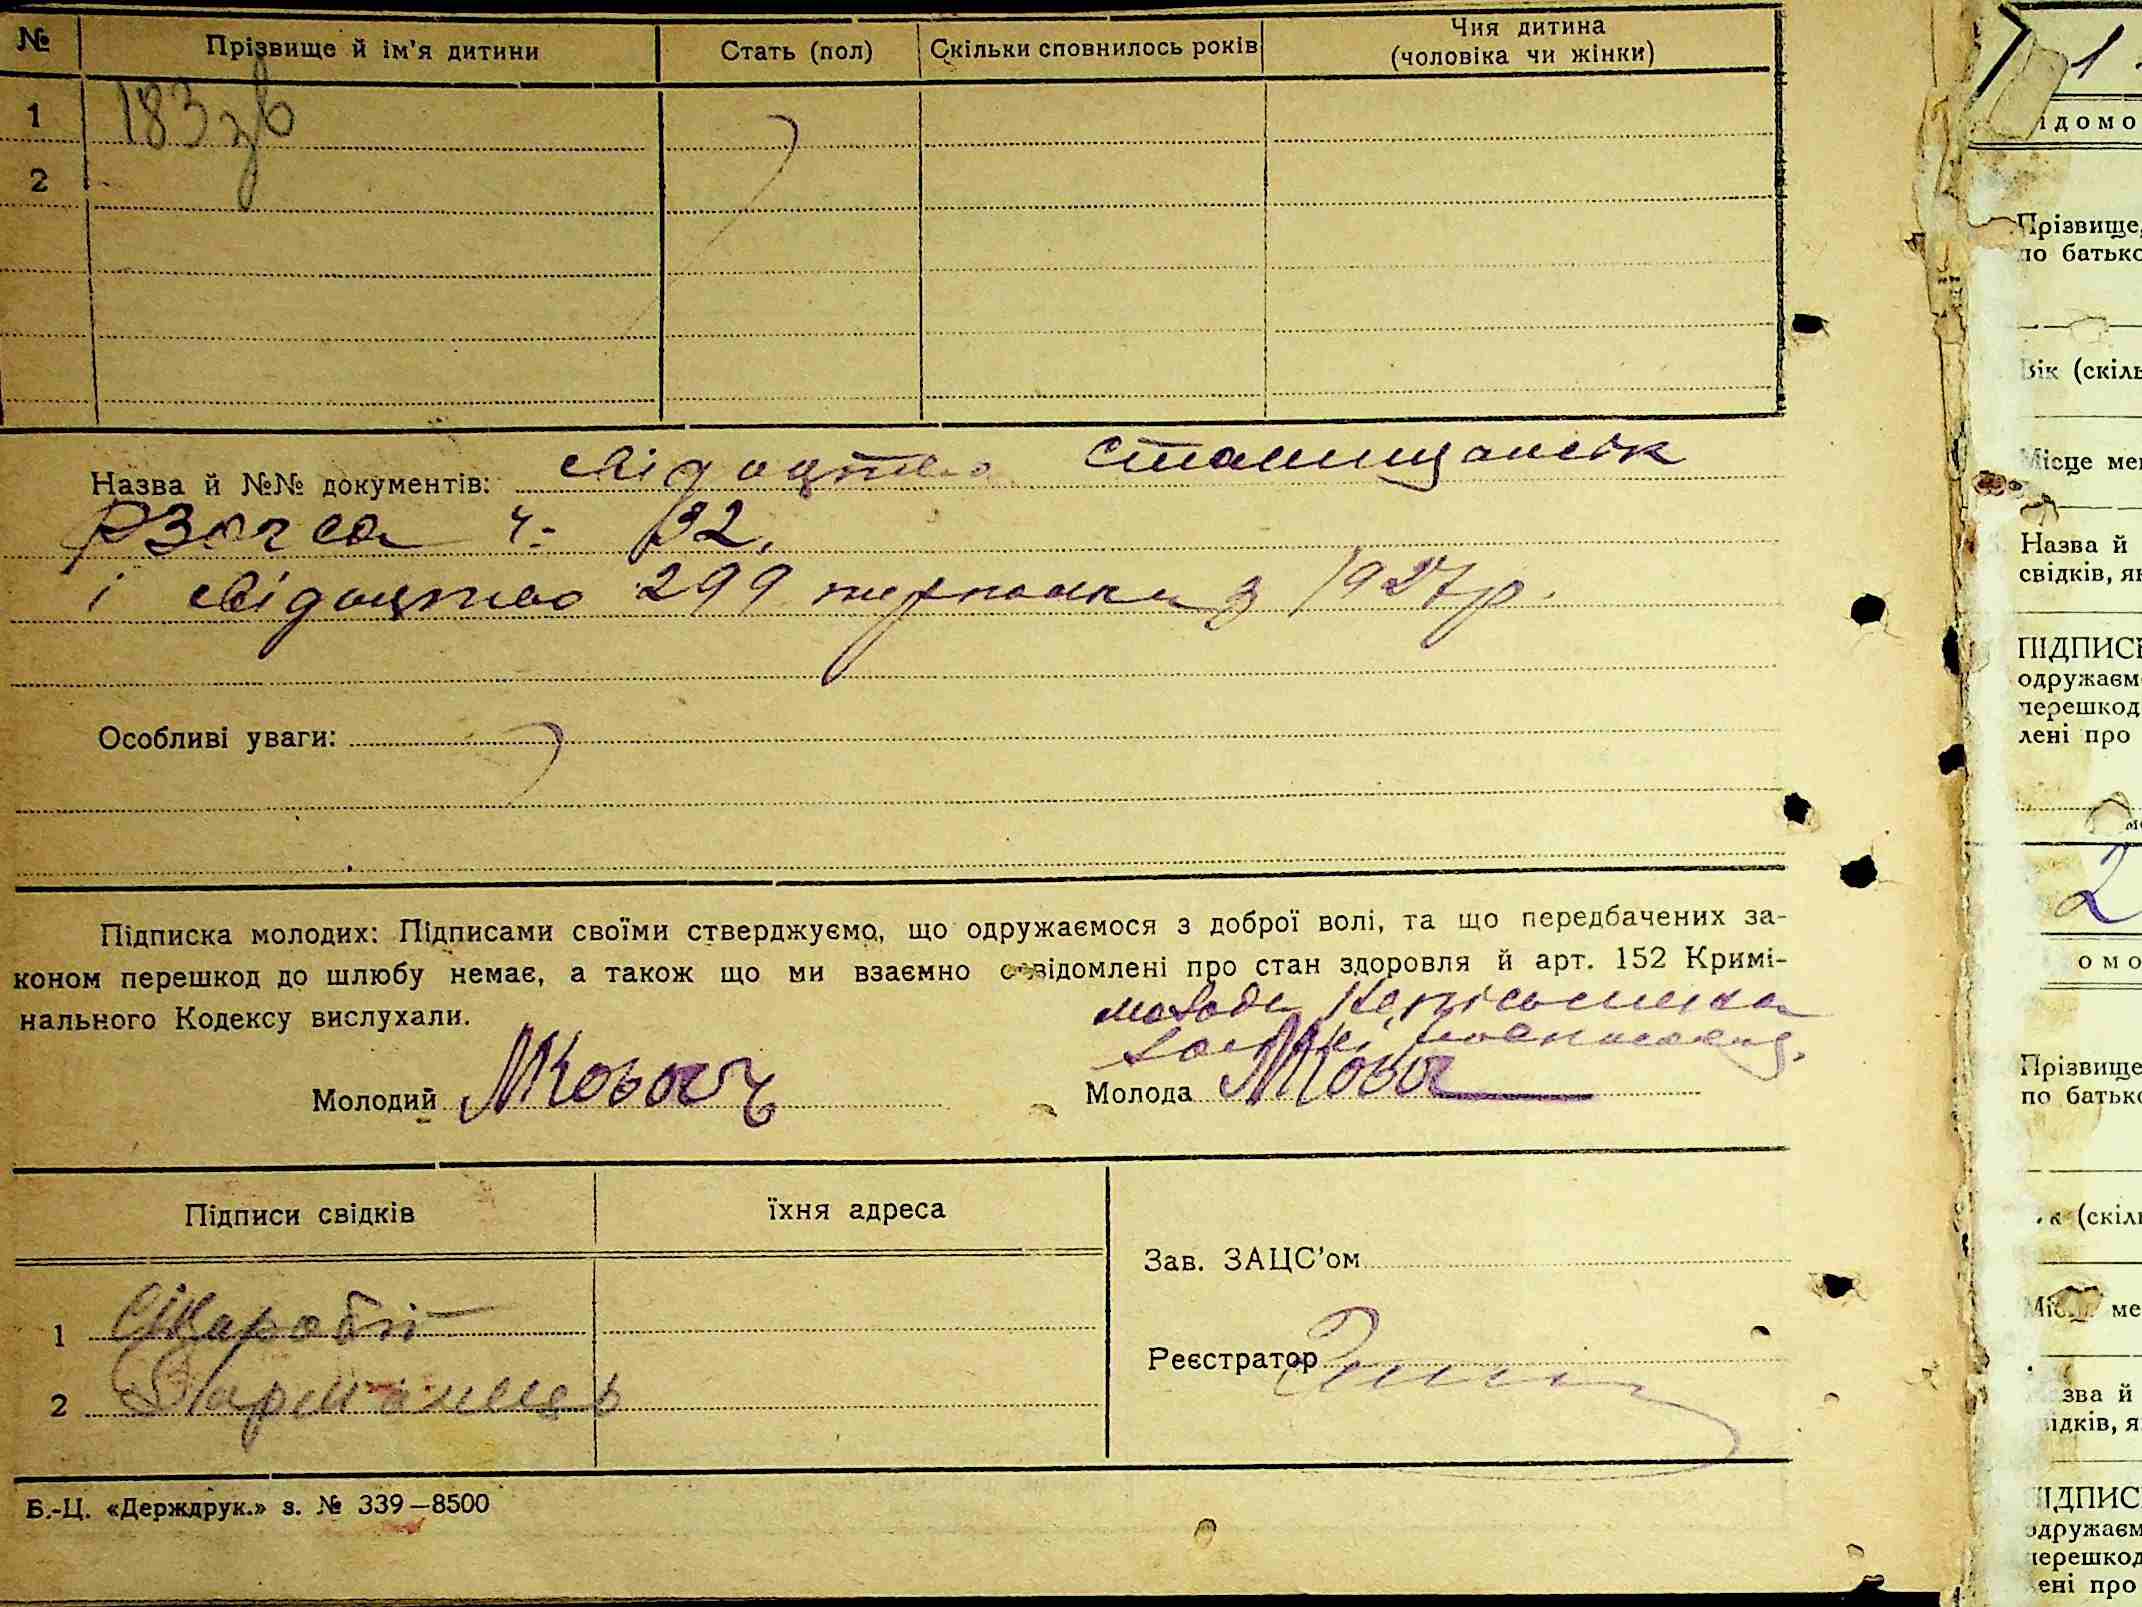 № Прізвище й ім'я дитини Стать (пол) Скільки сповнилось років Чия дитина (чоловіка чи жінки)
1 183 зв
2
Назва й №№ документів: свідоцтво
ч. 132.
і свідоцтво 299 з 1927 р.
Особливі уваги:
Підписка молодих: Підписами своїми стверджуємо, що одружаємося з доброї волі, та що передбачених за-
коном перешкод до шлюбу немає, а також що ми взаємно освідомлені про стан здоровля й арт. 152 Кримі-
нального Кодексу вислухали.
молода неписьменна
Молодий МКовал Молода МКова
Підписи свідків їхня адреса
Зав. ЗАЦС'ом
1
Реєстратор
2
Б.-Ц. «Держдрук.» з. № 339—8500
1
ідомо
Прізвище,
по батько
Вік (скіль
Місце ме
Назва й
свідків, як
ПІДПИС
одружаєм
перешкод
лені про
2
омо
Прізвище
по батько
(скіл
Місц ме
зва й
ідків, я
ПІДПИС
одружаєм
перешкод
ені про